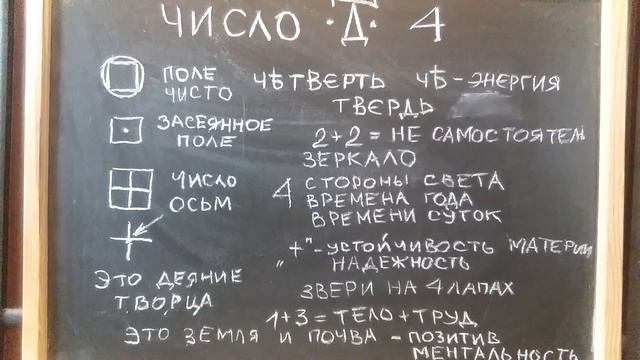 ЧИСЛО ·Д· 4
ПОЛЕ ЧИСТО
ЧѢТВЕРТЬ ЧѢ - ЭНЕРГИЯ
ТВЕРДЬ
ЗАСЕЯННОЕ ПОЛЕ
2+2 = НЕ САМОСТОЯТЕЛЬ
ЗЕРКАЛО
ЧИСЛО ОСЬМ
4 СТОРОНЫ СВЕТА
ВРЕМЕНА ГОДА
ВРЕМЕНИ СУТОК
„+" - УСТОЙЧИВОСТЬ МАТЕРИИ
НАДЕЖНОСТЬ
ЭТО ДЕЯНИЕ
ТВОРЦА
ЗВЕРИ НА 4 ЛАПАХ
1+3 = ТЕЛО + ТРУД
ЭТО ЗЕМЛЯ И ПОЧВА - ПОЗИТИВ
МЕНТАЛЬНОСТЬ